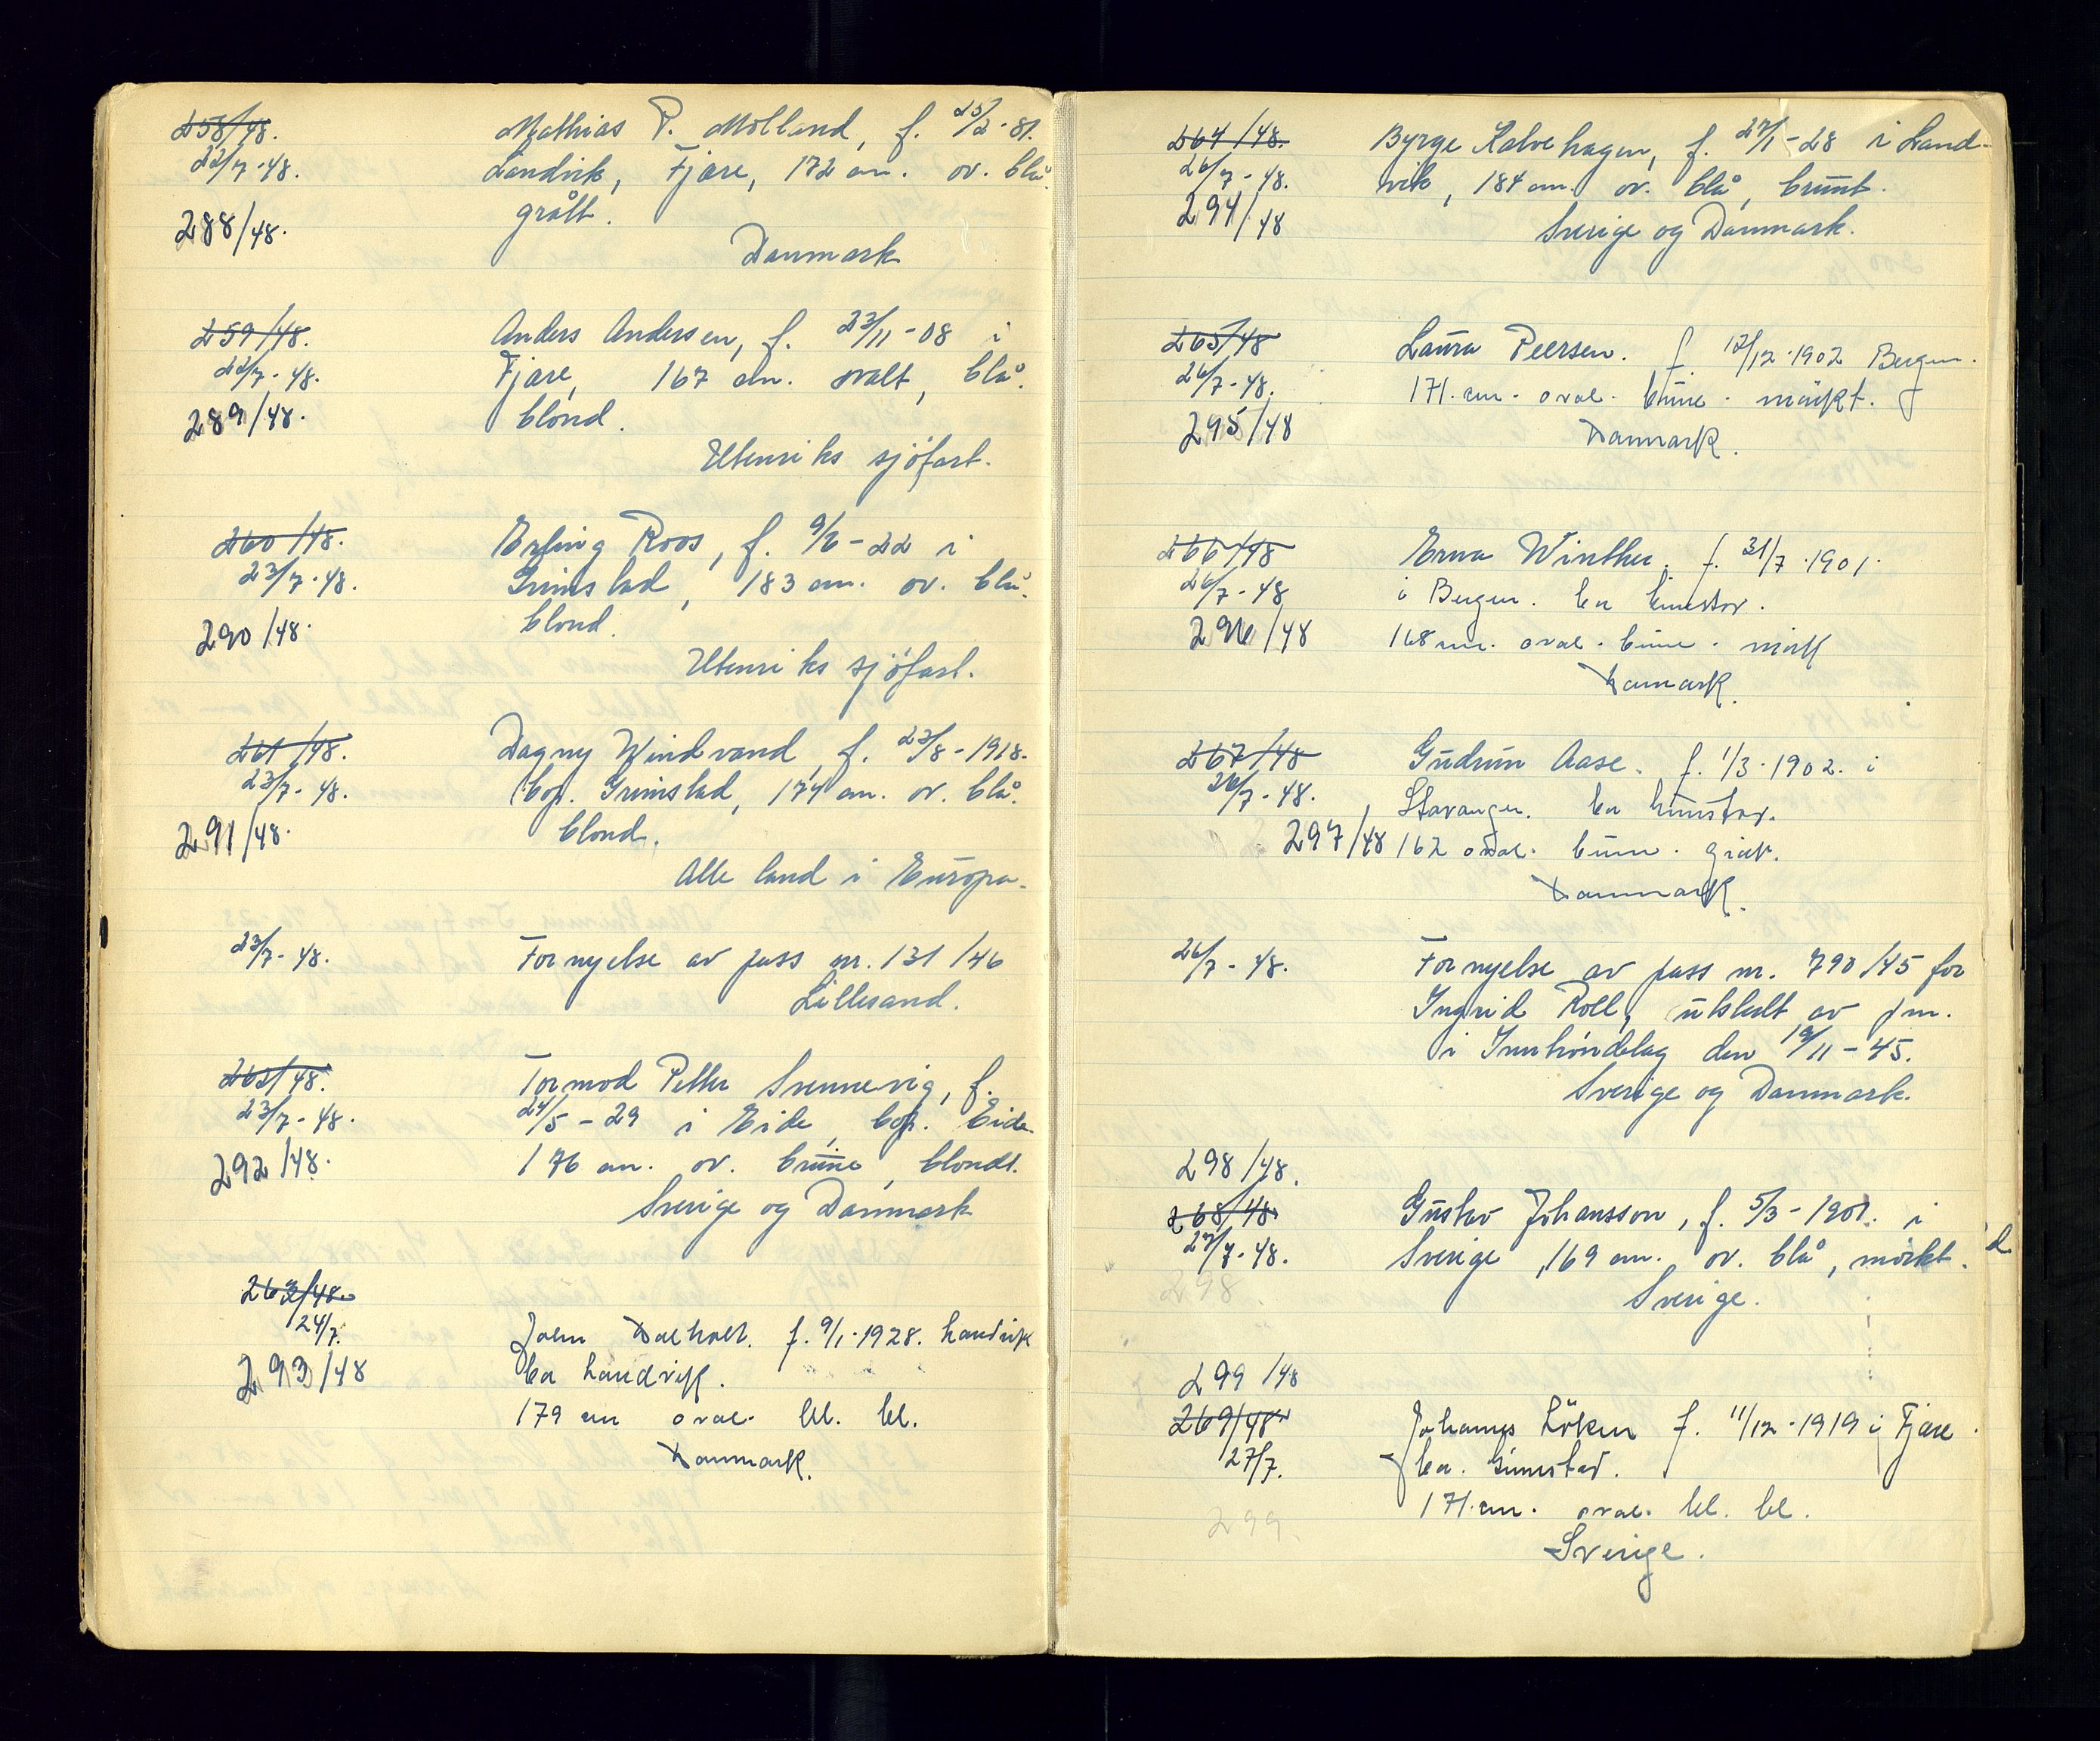 258/48.
22/7-48.
288/48.
Mathias P. Molland, f. 25/2-81.
Landvik, Fjære, 172 cm. ov. blå.
grått.
Danmark
259/48.
22/7-48.
289/48.
Anders Andersen, f. 23/11-08 i
Fjære, 167 cm. ovalt, blå.
blond.
Utenriks sjöfart.
260/48.
23/7-48.
290/48.
Erling Roos, f. 9/6-22 i
Grimstad, 183 cm. ov. blå.
blond.
Utenriks sjöfart.
261/48.
23/7-48.
291/48.
Dagny Windvand, f. 23/8-1918.
bop. Grimstad, 174 cm. ov. blå.
blond.
Alle land i Europa.
23/7-48.
Fornyelse av pass nr. 131/46
Lillesand.
262/48.
23/7-48.
292/48.
Tormod Petter Svennevig, f.
24/5-29 i Eide, bop. Eide.
176 cm. ov. brune, blondt.
Sverige og Danmark
263/48.
24/7.
293/48
John Dalholt. f. 9/1-1928. Landvik
bor Landvik.
179 cm oval. bl. bl.
Danmark.
264/48.
26/7-48.
294/48
Byrge Kalvehagen, f. 27/1-28 i Land-
vik, 184 cm. ov. blå, brunt.
Sverige og Danmark.
265/48
26/7-48.
295/48
Laura Peersen. f. 12/12-1902 Bergen.
171. cm. oval. brune. mörkt.
Danmark.
266/48
26/7-48
296/48
Erna Winther. f. 31/7-1901.
i Bergen. bor Grimstad.
168 cm. oval. brune. mörk
Danmark.
267/48
26/7-48.
297/48
Gudrun Aase. f. 1/3-1902. i
Stavanger. bor Grimstad.
162 oval. brune. grått.
Danmark.
26/7-48.
Fornyelse av pass nr. 790/45 for
Ingrid Roll, utstedt av pm.
i Inntröndelag den 19/11-45.
Sverige og Danmark.
298/48.
268/48
27/7-48.
298
Gustav Johansson, f. 5/3-1901. i
Sverige, 169 cm. ov. blå, mörkt.
Sverige.
299/48
269/48
27/7.
299.
Johannes Löken f. 11/12-1919 i Fjære.
bor. Grimstad.
171. cm. oval. bl. bl.
Sverige.